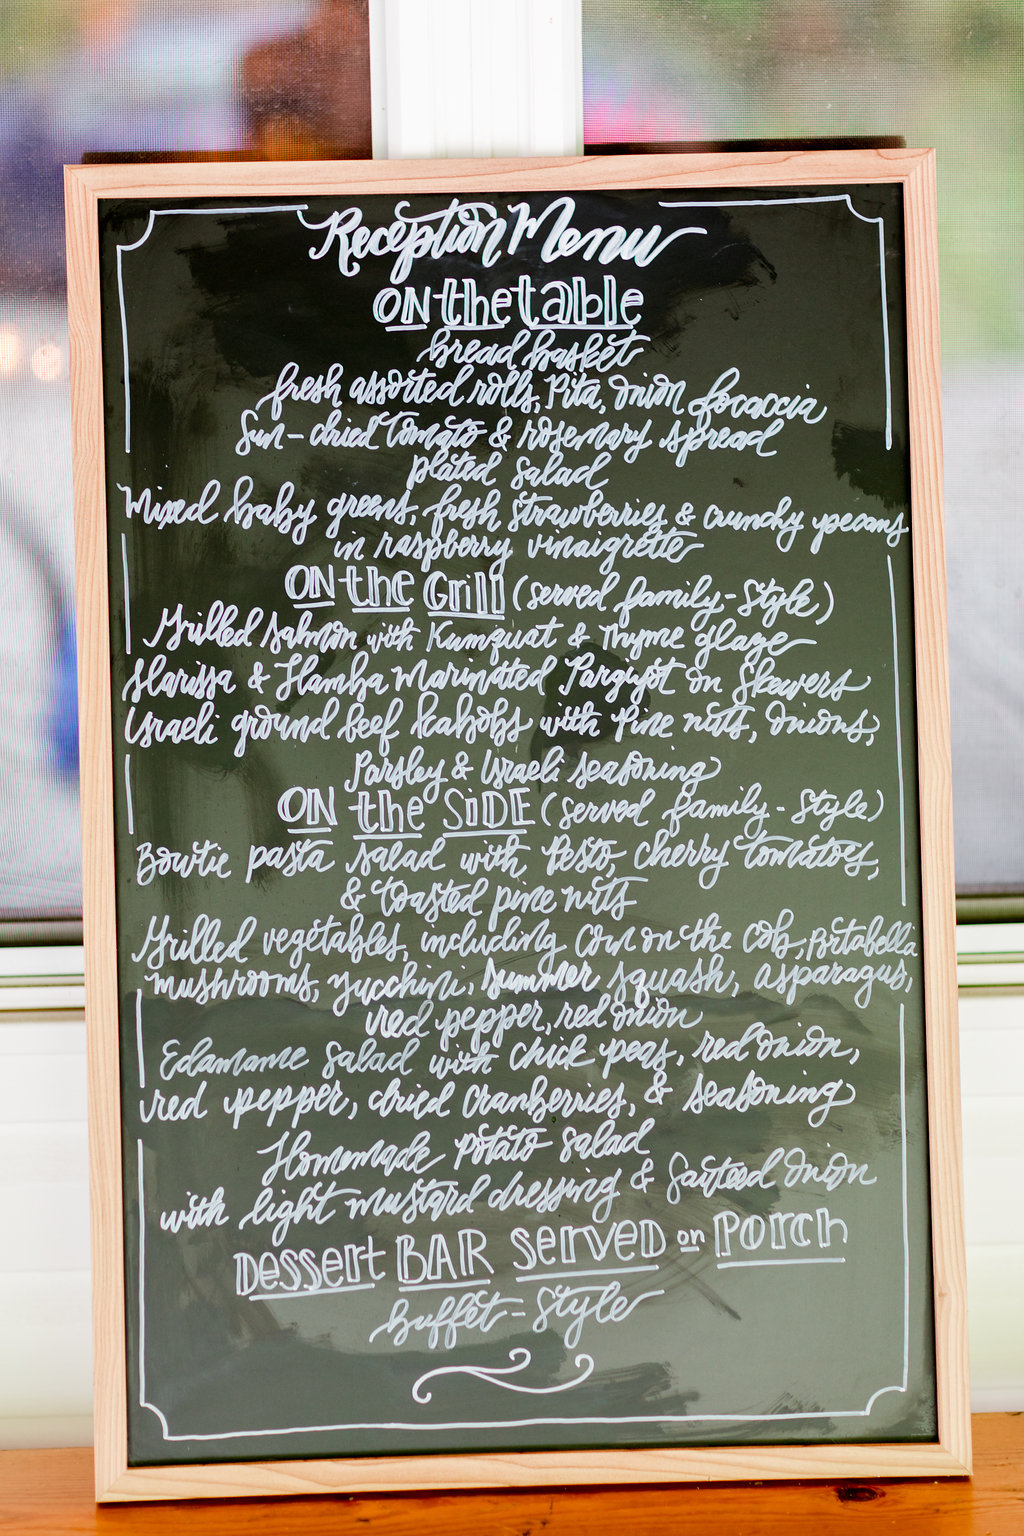 Reception Menu
ON the table
bread basket
fresh assorted rolls, Pita, onion focaccia
Sun-dried tomato & rosemary spread
plated salad
Mixed baby greens, fresh strawberries & crunchy pecans
in raspberry vinaigrette
ON the Grill (served family-style)
Grilled salmon with Kumquat & Thyme glaze
Harissa & Hamba Marinated Pargiyot on Skewers
Israeli ground beef kabobs with Pine nuts, onions,
Parsley & Israeli seasoning
ON the SIDE (served family-style)
Bowtie pasta salad with Pesto, cherry tomatoes,
& toasted pine nuts
Grilled vegetables, including corn on the cob, Portabella
mushrooms, zucchini, summer squash, asparagus,
red pepper, red onion
Edamame salad with chick peas, red onion,
red pepper, dried cranberries, & seasoning
Homemade potato salad
with light mustard dressing & Sauteed onion
Dessert BAR served on Porch
buffet-style